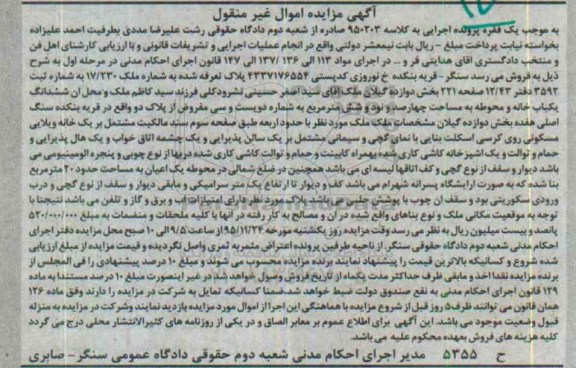 آگهی مزایده اموال غیر منقول
به موجب یک فقره پرونده اجرایی به کلاسه ۹۵۰۲۰۳ صادره از شعبه دوم دادگاه حقوقی رشت علیرضا مددی بطرفیت احمد علیزاده
بخواسته نیابت پرداخت مبلغ – ریال بابت نیمعشر دولتی واقع در انجام عملیات اجرایی و تشریفات قانونی و با ارزیابی کارشناس اهل فن
و منتخب دادگستری آقای هدایتی فر و ... در اجرای مواد ۱۱۳ الی ۱۳۶ /۱۳۷ الی ۱۴۷ قانون اجرای احکام مدنی در مرحله اول به شرح
ذیل به فروش می رسد سنگر- قریه بنکده خ نوروزی کدپستی ۴۳۳۷۱۷۶۵۵۴ پلاک تعرفه شده به شماره ملک ۱۷/۲۳۰ به شماره ثبت
۳۵۹۲ دفتر ۱۲/۴۳ صفحه ۲۲۱ بخش دوازده گیلان ملک آقای سید اصغر حسینی نشرودکلی فرزند سید کاظم ملک و محل ان ششدانگ
یکباب خانه و محوطه به مساحت چهارصد و نود و شش مترمربع به شماره دویست و سی مفروض از پلاک دو واقع در قریه بنکده سنگ
اصلی هفده بخش دوازده گیلان مشخصات ملک ملک مورد نظر با حدود اربعه طبق صفحه سوم سند مالکیت مشتمل بر یک خانه ویلایی
مسکونی روی کرسی اسکلت بنایی با نمای گچی و سیمانی مشتمل بر یک سالن پذیرایی و یک چشمه اتاق خواب و یک هال پذیرایی و
حمام و توالت و یک اشپزخانه کاشی کاری شده بهمراه کابینت و حمام و توالت کاشی کاری شده دربها از نوع چوبی و پنجره الومینیومی می
باشد دیوار و سقف از نوع گچی و کف اتاقها لیسه ای می باشد همچنین در ضلع شمالی در محوطه یک اعیان به مساحت حدود ۲۰ مترمربع
بنا شده که به صورت ارایشگاه پسرانه شهرام می باشد کف و دیوار تا ارتفاع یک متر سرامیکی و مابقی دیوار و سقف از نوع گچی و درب
ورودی سکوریتی بود و سقف ان چوب با پوشش حلب می باشد پلاک مورد نظر دارای امتیازات اب و برق و گاز و تلفن می باشد نتیجتا با
توجه به موقعیت مکانی ملک و نوع بناهای واقع شده در ان و مصالح به کار رفته در آنها با کلیه ملحقات و منضمات به مبلغ ۵۲۰/۰۰۰/۰۰۰
پانصد و بیست میلیون ریال به نظر می رسد وقت مزایده روز یکشنبه مورخه ۹۵/۱۱/۲۴ از ساعت ۹/۵ الی ۱۰ صبح محل مزایده دفتر اجرای
احکام مدنی شعبه دوم دادگاه حقوقی سنگر. از ناحیه طرفین پرونده اعتراض مثمربه ثمری واصل نگردیده و قیمت مزایده از مبلغ ارزیابی
شده شروع و کسانیکه بالاترین قیمت را پیشنهاد نمایند برنده مزایده محسوب می شوند و مبلغ ۱۰ درصد پیشنهادی را فی المجلس از
برنده مزایده نقدا اخذ و مابقی ظرف حداکثر مدت یکماه از تاریخ فروش وصول خواهد شد در غیر اینصورت مبلغ ۱۰ درصد مستندا به ماده
۱۲۹ قانون اجرای احکام مدنی به نفع صندوق دولت ضبط خواهد شد. ضمنا کسانیکه تمایل به شرکت در مزایده را دارند وفق ماده ۱۲۶
همان قانون می توانند ظرف ۵ روز قبل از شروع مزایده با هماهنگی این اجرا از اموال مورد مزایده بازدید نمایند وشرکت در مزایده به منزله
قبول وضعیت موجود می باشد. این آگهی برای اطلاع عموم بر معابر الصاق و در یکی از روزنامه های کثیرالانتشار محلی درج می گردد
کلیه هزینه های فروش بعهده محکوم علیه می باشد.
ح ۵۳۵۵ مدیر اجرای احکام مدنی شعبه دوم حقوقی دادگاه عمومی سنگر- صابری